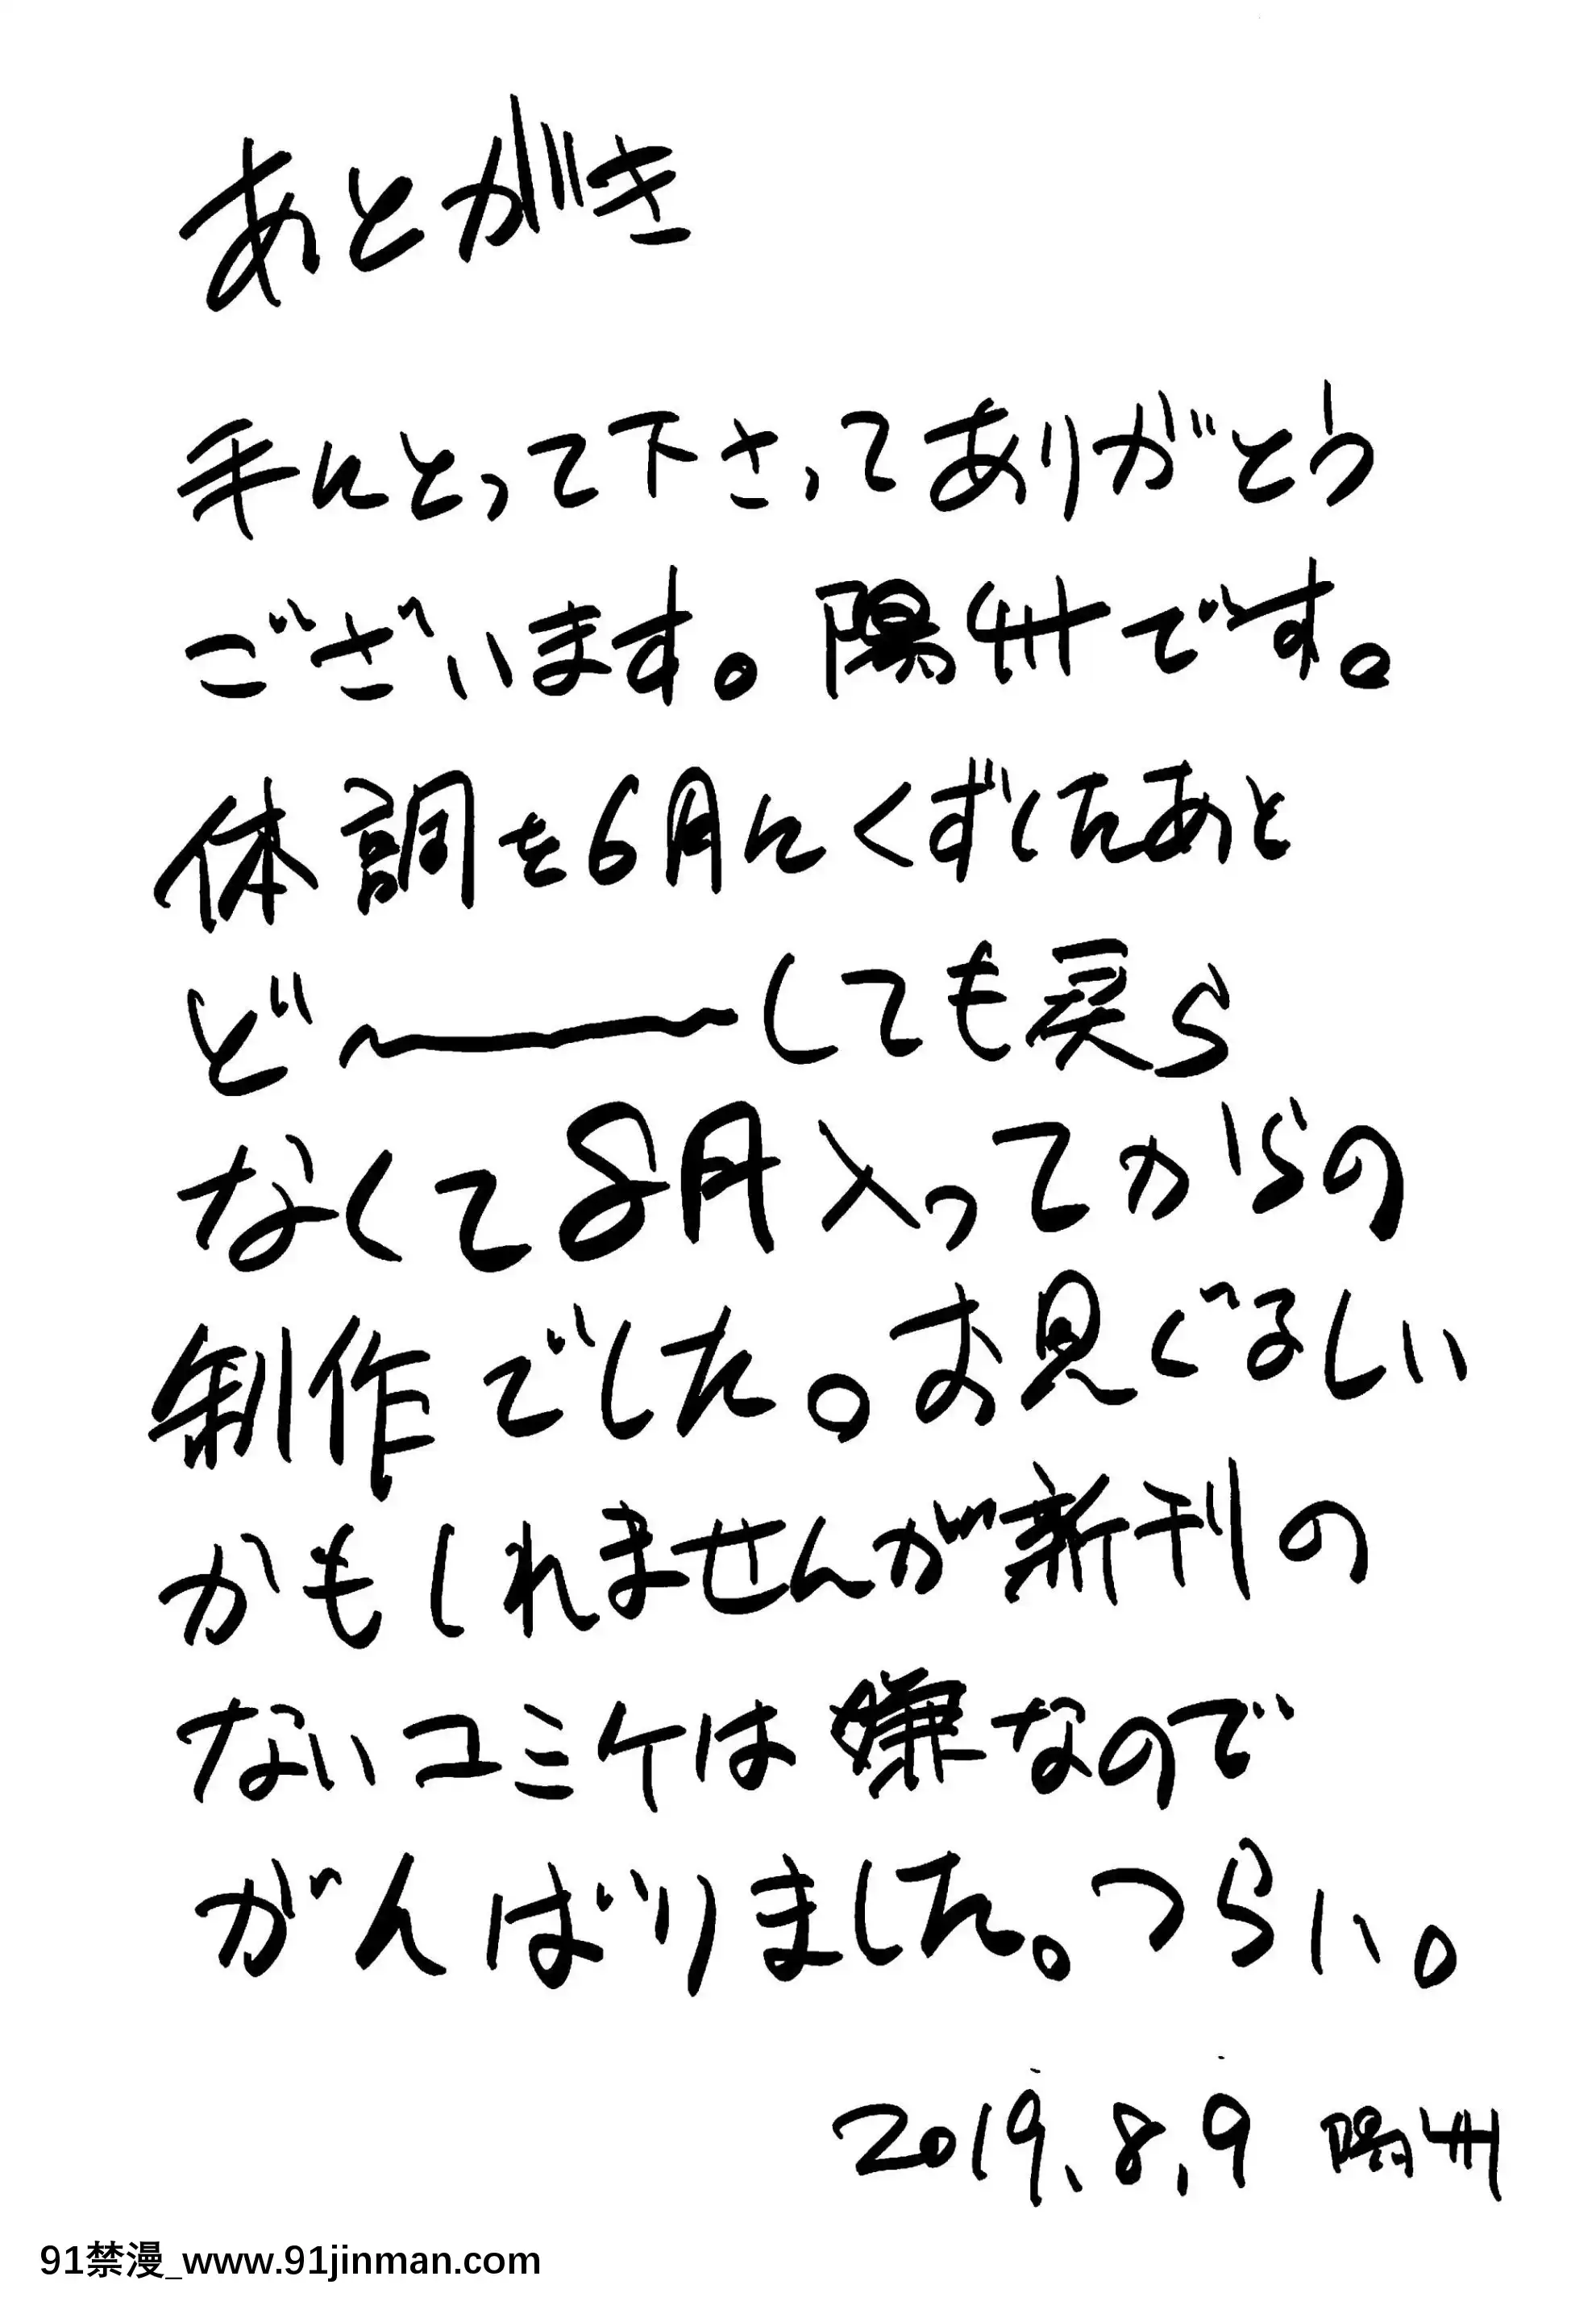 あとがき
手にとって下さってありがとう
ございます。陽州です。
体調を6月にくずしたあと
ど〜しても戻ら
なくて8月入ってからの
制作でした。お見ぐるしい
かもしれませんが新刊の
ないコミケは嫌なので
がんばりました。つらい。
2019.8.9 陽州
91禁漫_www.91jinman.com